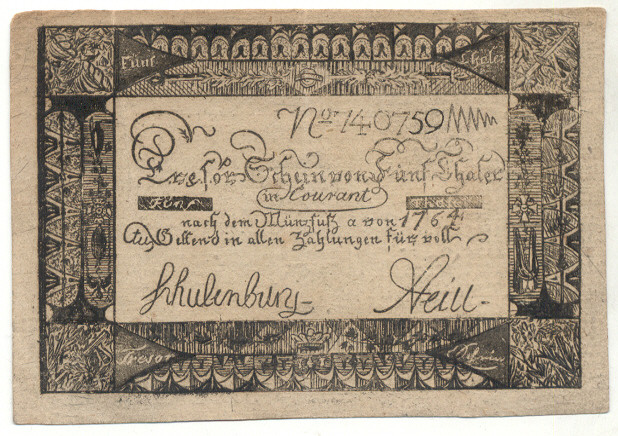 Fünf Thaler
No. 140759
Tresor Schein von Fünf Thaler
in Courant
Fünf
nach dem Münzfuß a von 1764
Gellend in allen Zahlungen für voll
Schulenburg Stein
Tresor